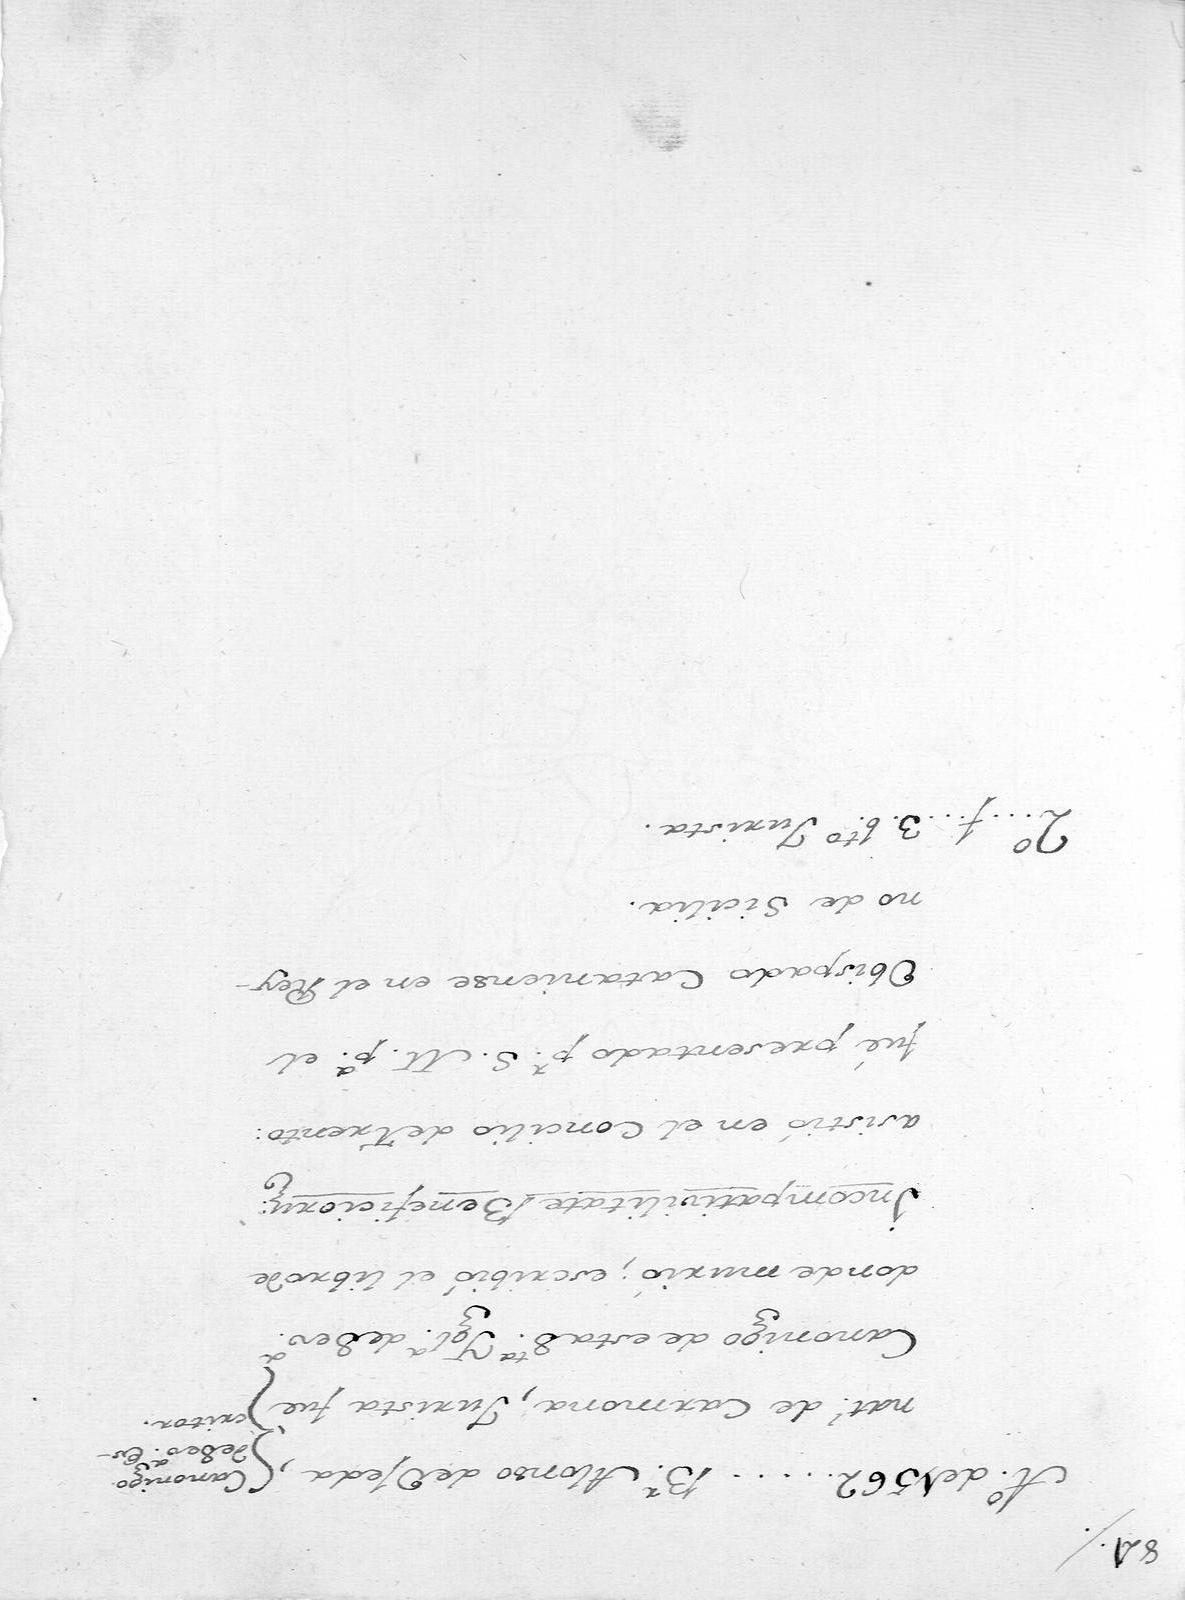 81./.
A.º de 1562...... B.r Alonso de Ojeda,
Canonigo
de Sev.a Es-
critor.
nat.l de Carmona, Jurista fue
Canonigo de esta S.ta Ygl.a de Sev.a
donde murió; escribió el libro de
Incompativilitate Beneficiorũ:
asistió en el Concilio de Trento:
fué presentado p.r S. M. p.a el
Obispado Cataniense en el Rey-
no de Sicilia.
2º....f....3. b.to Jurista.